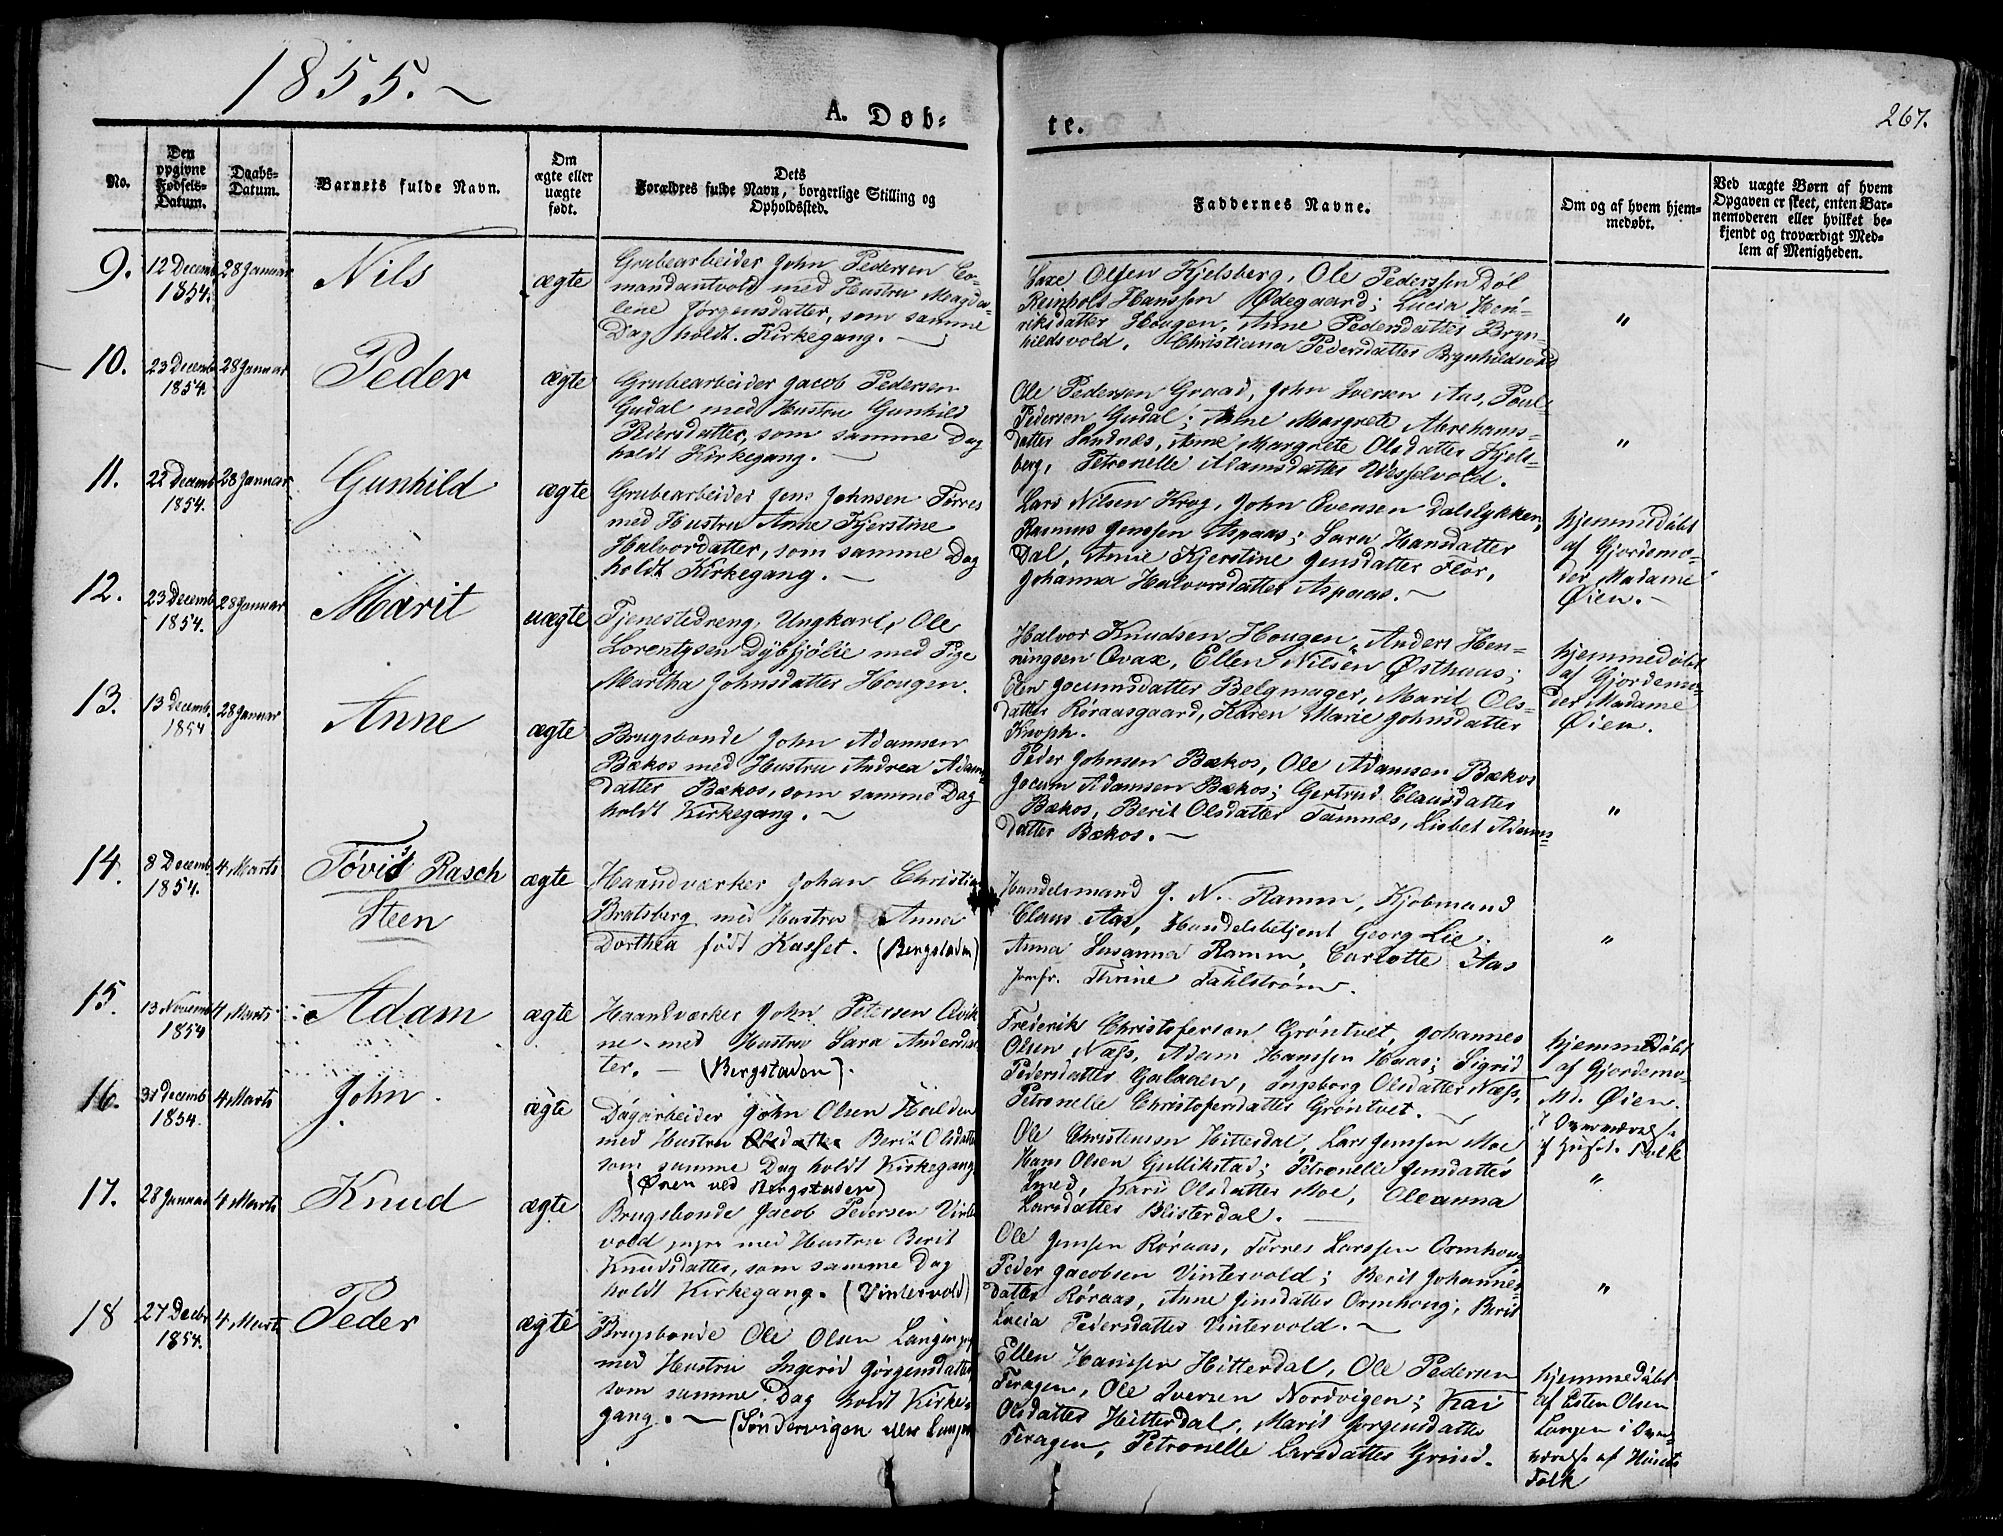 1855.
A. Døb-
te.
267.
No.
Den opgivne Fødsels-Datum.
Daabs-Datum.
Barnets fulde Navn.
Om ægte eller uægte født.
Forældres fulde Navn, borgerlige Stilling og Dets Opholdssted.
Faddernes Navne.
Om og af hvem hjem-medøbt.
Ved uægte Børn af hvem
Opgaven er skeet, enten Bar-
nemoderen eller hvilket be-
kjendt og troværdigt Med-
lem af Menigheden.
9.
12 Decemb 1854.
28 Januar
Nils
ægte
Grubearbeider John Pedersen Co-
mandantvold med Hustru Magda-
lene Jørgensdatter, som samme
Dag holdt Kirkegang. —
Olsen Kjelsberg, Ole Pederssen Døl
Reinholt Hanssen Ødegaard; Lucia Hen-
riksdatter Hougen, Anne Pedersdatter Bryn-
hildsvold, Christiana Pedersdatter Brynhildsvold
"
10.
23 Decemb 1854.
28 Januar
Peder
ægte
Grubearbeider Jacob Pedersen
Gudal med Hustru Gunhild
Piersdatter, som samme Dag
holdt Kirkegang. —
Ole Pedersen Graad, John Iversen Aas, Poul
Pedersen Gudal; Anne Margrete Abrehams-
datter Sandnæs, Anne Margrete Olsdatter Kjels-
berg, Petronelle Adamsdatter Wesselvold.
"
11.
22 Decemb 1854.
28 Januar
Gunhild
ægte
Grubearbeider Jens Johnsen Tørres
med Hustru Anne Kjerstine
Halvordatter, som samme Dag
holdt Kirkegang. —
Lars Nilsen Krog, John Evensen Dalslykken,
Rasmus Jenssen Aspaas; Sara Hansdatter
Dal, Anne Kjerstine Jensdatter Flor,
Johanna Halvorsdatter Aspaas. —
hjemmedøbt
af Gjordemo-
der Madame
Øien. —
12.
23 Decemb 1854.
28 Januar
Marit
uægte
Tjenestedreng, Ungkarl, Ole
Lorentsen Dybfjølie med Pige
Martha Johnsdatter Hougen.
Halvor Knudsen Hougen, Anders Hen-
ningsen Qvax, Ellen Nilsen Østhaas;
Elen Jocumsdatter Belgmager, Marit Ols-
datter Røraasgaard, Karen Marie Johnsdatter
Knoph.
hjemmedøbt
af Gjordemo-
der Madame
Øien.
13.
13 Decemb. 1854
28 Januar
Anne
ægte
Brugsbonde John Adamsen
Bækos med Hustru Andrea Adams-
datter Bækos, som samme Dag
holdt Kirkegang. —
Peder Johnsen Bækos, Ole Adamsen Bækos
Jocum Adamsen Bækos; Gertrud Clausdatter
Bækos, Berit Olsdatter Tamnæs, Lisbet Adams-
datter Bækos. —
"
14.
8 Decemb 1854.
4 Marts
Tøvid Rasch
Steen
ægte
Haandværker Johan Christian
Bratsberg med Hustru Anna
Dorthea født Kasset. (Bergstaden)
Handelsmand J. N. Ramm, Kjøbmand
Claus Aas, Handelsbetjent Georg Lie.
Anna Susanna Ramm, Carlotte Aas
Jomfr. Thrine Fahlstrøm.
"
15.
13 Novemb 1854
4 Marts
Adam
ægte
Haandværker John Petersen Qvik
ne med Hustru Sara Andersdat
ter. — (Bergstaden).
Frederik Christofersen Grøntvet, Johannes
Olsen Næss, Adam Hanssen Haas; Sigrid
Pedersdatter Galaaen, Ingeborg Olsdatter Næss,
Petronelle Christofersdatter Grøntvet. —
hjemmedøbt
af Gjordemo-
Md. Øien.
i Overværelse
af Husets Folk
16.
31 Decemb 1854.
4 Marts
John
ægte
Dagarbeider John Olsen Haalden
med Hustru Olsdatter Berit Olsdatter
som samme Dag holdt Kirkegang
(Øren ved Bergstaden)
Ole Christensen Hitterdal, Lars Jenssen Moe
Hans Olsen Gullikstad; Petronelle Jensdatter
Smed, Kari Olsdatter Moe, Oleanna
Larsdatter Blisterdal. —
"
17.
28 Januar
4 Marts
Knud
ægte
Brugsbonde Jacob Pedersen Vinter
vold med Hustru Berit
Knudsdatter, som samme Dag
holdt Kirkegang. (Vintervold)
Ole Jensen Røraas, Tørres Larssen Ormhoug
Peder Jacobsen Vintervold; Berit Johannes-
datter Røraas, Anne Jensdatter Ormhoug, Berit
Lucia Pedersdatter Vintervold. —
"
18
27 Decbr 1854.
4 Marts
Peder
ægte
Brugsbonde Ole Olsen Langen
med Hustru Ingerid Jørgensdatter,
som samme Dag holdt Kirke-
gang. — (Søndervigen eller Langen
Ellen Hanssen Hitterdal, Ole Pedersen
Feragen, Ole Iversen Nordvigen; Kari
Olsdatter Hitterdal, Marit Jørgensdatter
Feragen, Petronelle Larsdatter Grind.
hjemmedøbt
af Esten Olsen
Langen i Over-
værelse af Husets
Folk